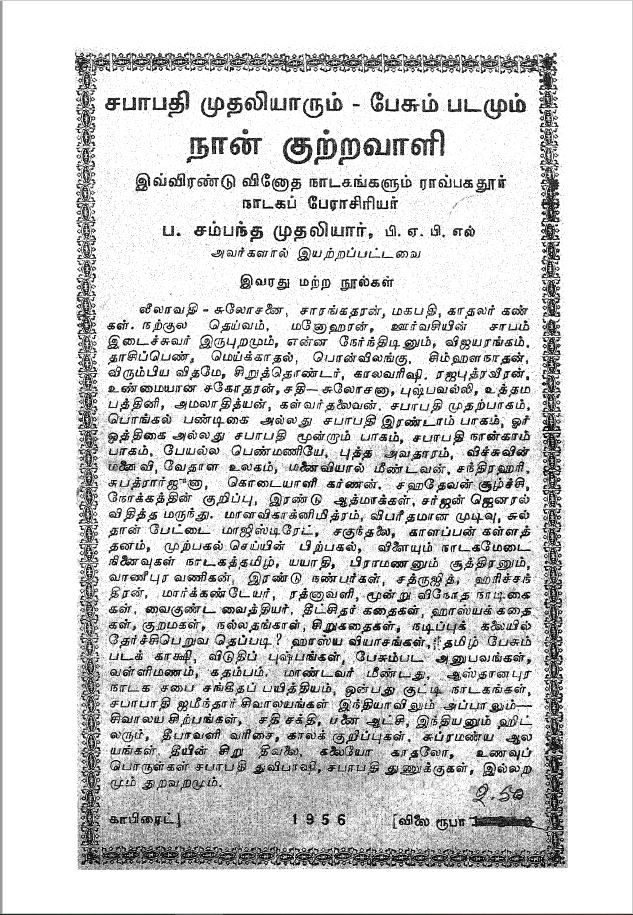 சபாபதி முதலியாரும் - பேசும் படமும்
நான் குற்றவாளி
இவ்விரண்டு வினோத நாடகங்களும் ராவ்பகதூர்
நாடகப் பேராசிரியர்
ப. சம்பந்த முதலியார், பி. ஏ. பி. எல்
அவர்களால் இயற்றப்பட்டவை
இவரது மற்ற நூல்கள்
லீலாவதி - சுலோசனை, சாரங்கதரன், மகபதி, காதலர் கண்
கள். நற்குல தெய்வம், மனோஹரன், ஊர்வசியின் சாபம்
இடைச்சுவர் இருபுறமும், என்ன நேர்ந்திடினும், விஜயரங்கம்.
தாசிப்பெண், மெய்க்காதல், பொன்விலங்கு, சிம்ஹளநாதன்,
விரும்பிய விதமே, சிறுத்தொண்டர், காலவரிஷி. ரஜபுத்ரவீரன்,
உண்மையான சகோதரன், சதி—சுலோசனா, புஷ்பவல்லி, உத்தம
பத்தினி, அமலாதித்யன், கள்வர்தலைவன். சபாபதி முதற்பாகம்,
பொங்கல் பண்டிகை அல்லது சபாபதி இரண்டாம் பாகம், ஓர்
ஒத்திகை அல்லது சபாபதி மூன்றும் பாகம், சபாபதி நான்காம்
பாகம், பேயல்ல பெண்மணியே, புத்த அவதாரம், விச்சுவின்
மனைவி, வேதாள உலகம், மணைவியால் மீண்டவன், சந்திரஹரி.
சுபத்ரார்ஜுனா, கொடையாளி கர்ணன். சஹதேவன் சூழ்ச்சி,
நோக்கத்தின் குறிப்பு, இரண்டு ஆத்மாக்கள், சர்ஜன் ஜெனரல்
விதித்த மருந்து. மாளவிகாக்னிமித்ரம், விபரீதமான முடிவு, சுல்
தான் பேட்டை மாஜிஸ்டிரேட், சகுந்தலை, காளப்பன் கள்ளத்
தனம், முற்பகல் செய்யின் பிற்பகல், விளையும் நாடகமேடை
நினைவுகள் நாடகத்தமிழ், யயாதி, பிராமணனும் சூத்திரனும்,
வாணீபுர வணிகன், இரண்டு நண்பர்கள், சத்ருஜித், ஹரிச்சந்
திரன், மார்க்கண்டேயர், ரத்னாவளி, மூன்று வினோத நாடிகை
கள், வைகுண்ட வைத்தியர், தீட்சிதர் கதைகள், ஹாஸ்யக்கதை
கள், குறமகள், நல்லதங்காள், சிறுகதைகள், நடிப்புக் கலையில்
தேர்ச்சிபெறுவ தெப்படி? ஹாஸ்ய வியாசங்கள், தமிழ் பேசும்
படக் காக்ஷி, விடுதிப் புஷ்பங்கள், பேசும்பட அனுபவங்கள்,
வள்ளிமணம், கதம்பம், மாண்டவர் மீண்டது. ஆஸ்தானபுர
நாடக சபை சங்கீதப் பயித்தியம், ஒன்பது குட்டி நாடகங்கள்,
சபாபாதி ஜமீந்தார் சிவாலயங்கள் இந்தியாவிலும் அப்பாலும்—
சிவாலய சிற்பங்கள், சதி சக்தி, மனை ஆட்சி, இந்தியனும் ஹிட்
லரும், தீபாவளி வரிசை, காலக் குறிப்புகள். சுப்ரமண்ய ஆல
யங்கள், தீயின் சிறு திவலை. கலையோ காதலோ, உணவுப்
பொருள்கள் சபாபதி துவிபாஷி, சபாபதி துணுக்குகள், இல்லற
மும் துறவறமும்.
2.50
காபிரைட்] 1956 [விலை ரூபா